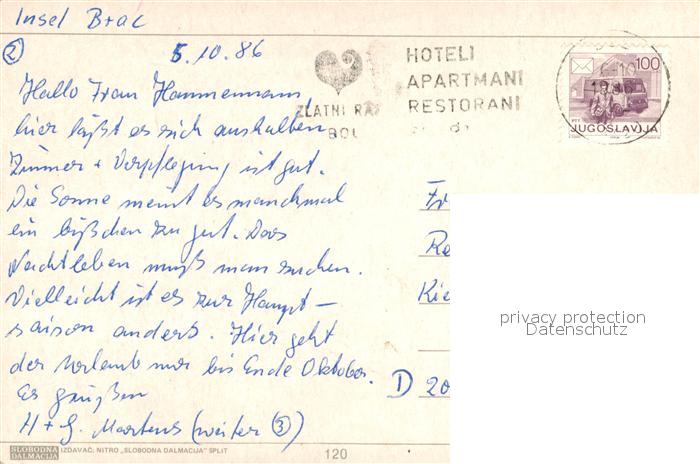 Insel Brac
② 5.10.86
Hallo Frau Hannemann
hier läßt es sich aushalten
Zimmer + Verpflegung ist gut.
Die Sonne meint es manchmal
ein bißchen zu gut. Das
Nachtleben muß man suchen.
Vielleicht ist es zur Haupt-
saison anders. Hier geht
der Urlaub nur bis Ende Oktober.
Es grüßen
H + G. Martens (weiter ③)
ZLATNI RAT
BOL
HOTELI
APARTMANI
RESTORANI
100
PTT
JUGOSLAVIJA
Fr
Kie
D 20
privacy protection
Datenschutz
SLOBODNA DALMACIJA IZDAVAČ: NITRO „SLOBODNA DALMACIJA" SPLIT
120